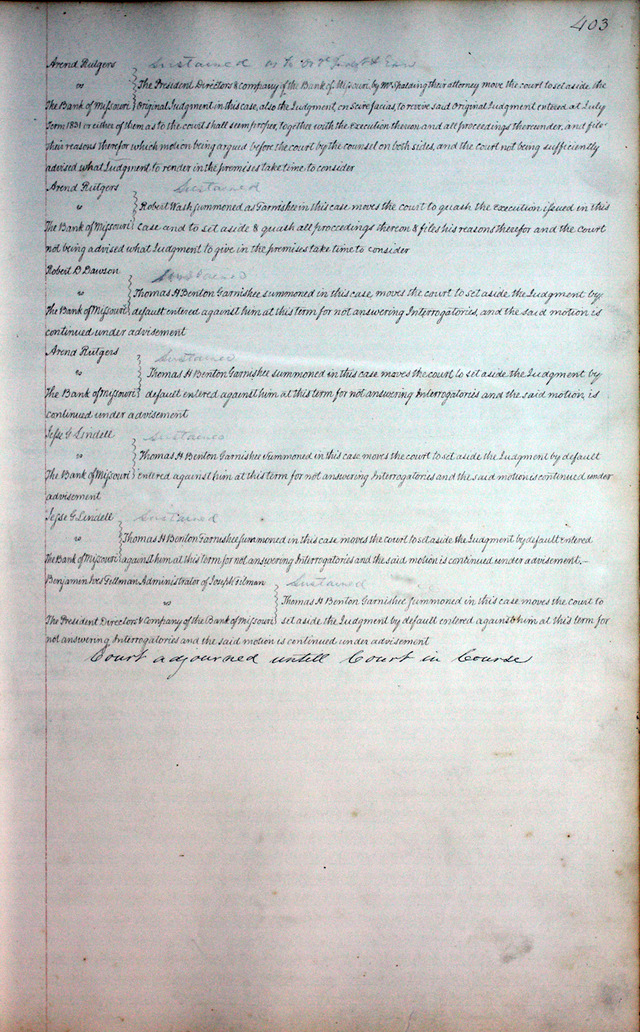 403
Arend Rutgers Sustained as to
vs The President Directors & company of the Bank of Missouri, by Mr Spalding their attorney move the court to set aside, the
The Bank of Missouri Original Judgment in this case, also the Judgment, on Scire facias, to revive said Original Judgment entered at July
Term 1831 or either of them as to the court shall seem proper, together with the execution thereon and all proceedings thereunder, and file
their reasons therefor which motion being argued before the court by the counsel on both sides, and the court not being sufficiently
advised what Judgment to render in the premises take time to consider
Arend Rutgers Sustained
vs Robert Wash summoned as Garnishee in this case moves the court to quash the execution issued in this
The Bank of Missouri case and to set aside & quash all proceedings thereon & files his reasons therefor and the Court
not being advised what Judgment to give in the premises take time to consider
Robert D Dawson Sustained
vs Thomas H Benton Garnishee summoned in this case, moves the court to set aside the Judgment by
The Bank of Missouri default entered against him at this term for not answering Interrogatories, and the said motion is
continued under advisement
Arend Rutgers Sustained
vs Thomas H Benton Garnishee summoned in this case moves the court to set aside the Judgment by
The Bank of Missouri default entered against him at this term for not answering Interrogatories and the said motion, is
continued under advisement
Jesse G Lindell Sustained
vs Thomas H Benton Garnishee Summoned in this case moves the court to set aside the Judgment by default
The Bank of Missouri entered against him at this term for not answering Interrogatories and the said motion is continued under
advisement
Jesse G Lindell Sustained
vs Thomas H Benton Garnishee summoned in this case moves the court to set aside the Judgment by default entered
The Bank of Missouri against him at this term for not answering Interrogatories and the said motion is continued under advisement,–
Benjamin Ives Gillman Administrator of Joseph Gilman Sustained
vs Thomas H Benton Garnishee summoned in this case moves the court to
The President Directors & Company of the Bank of Missouri set aside the Judgment by default entered against him at this term for
not answering Interrogatories and the said motion is continued under advisement
Court adjourned untill Court in Course